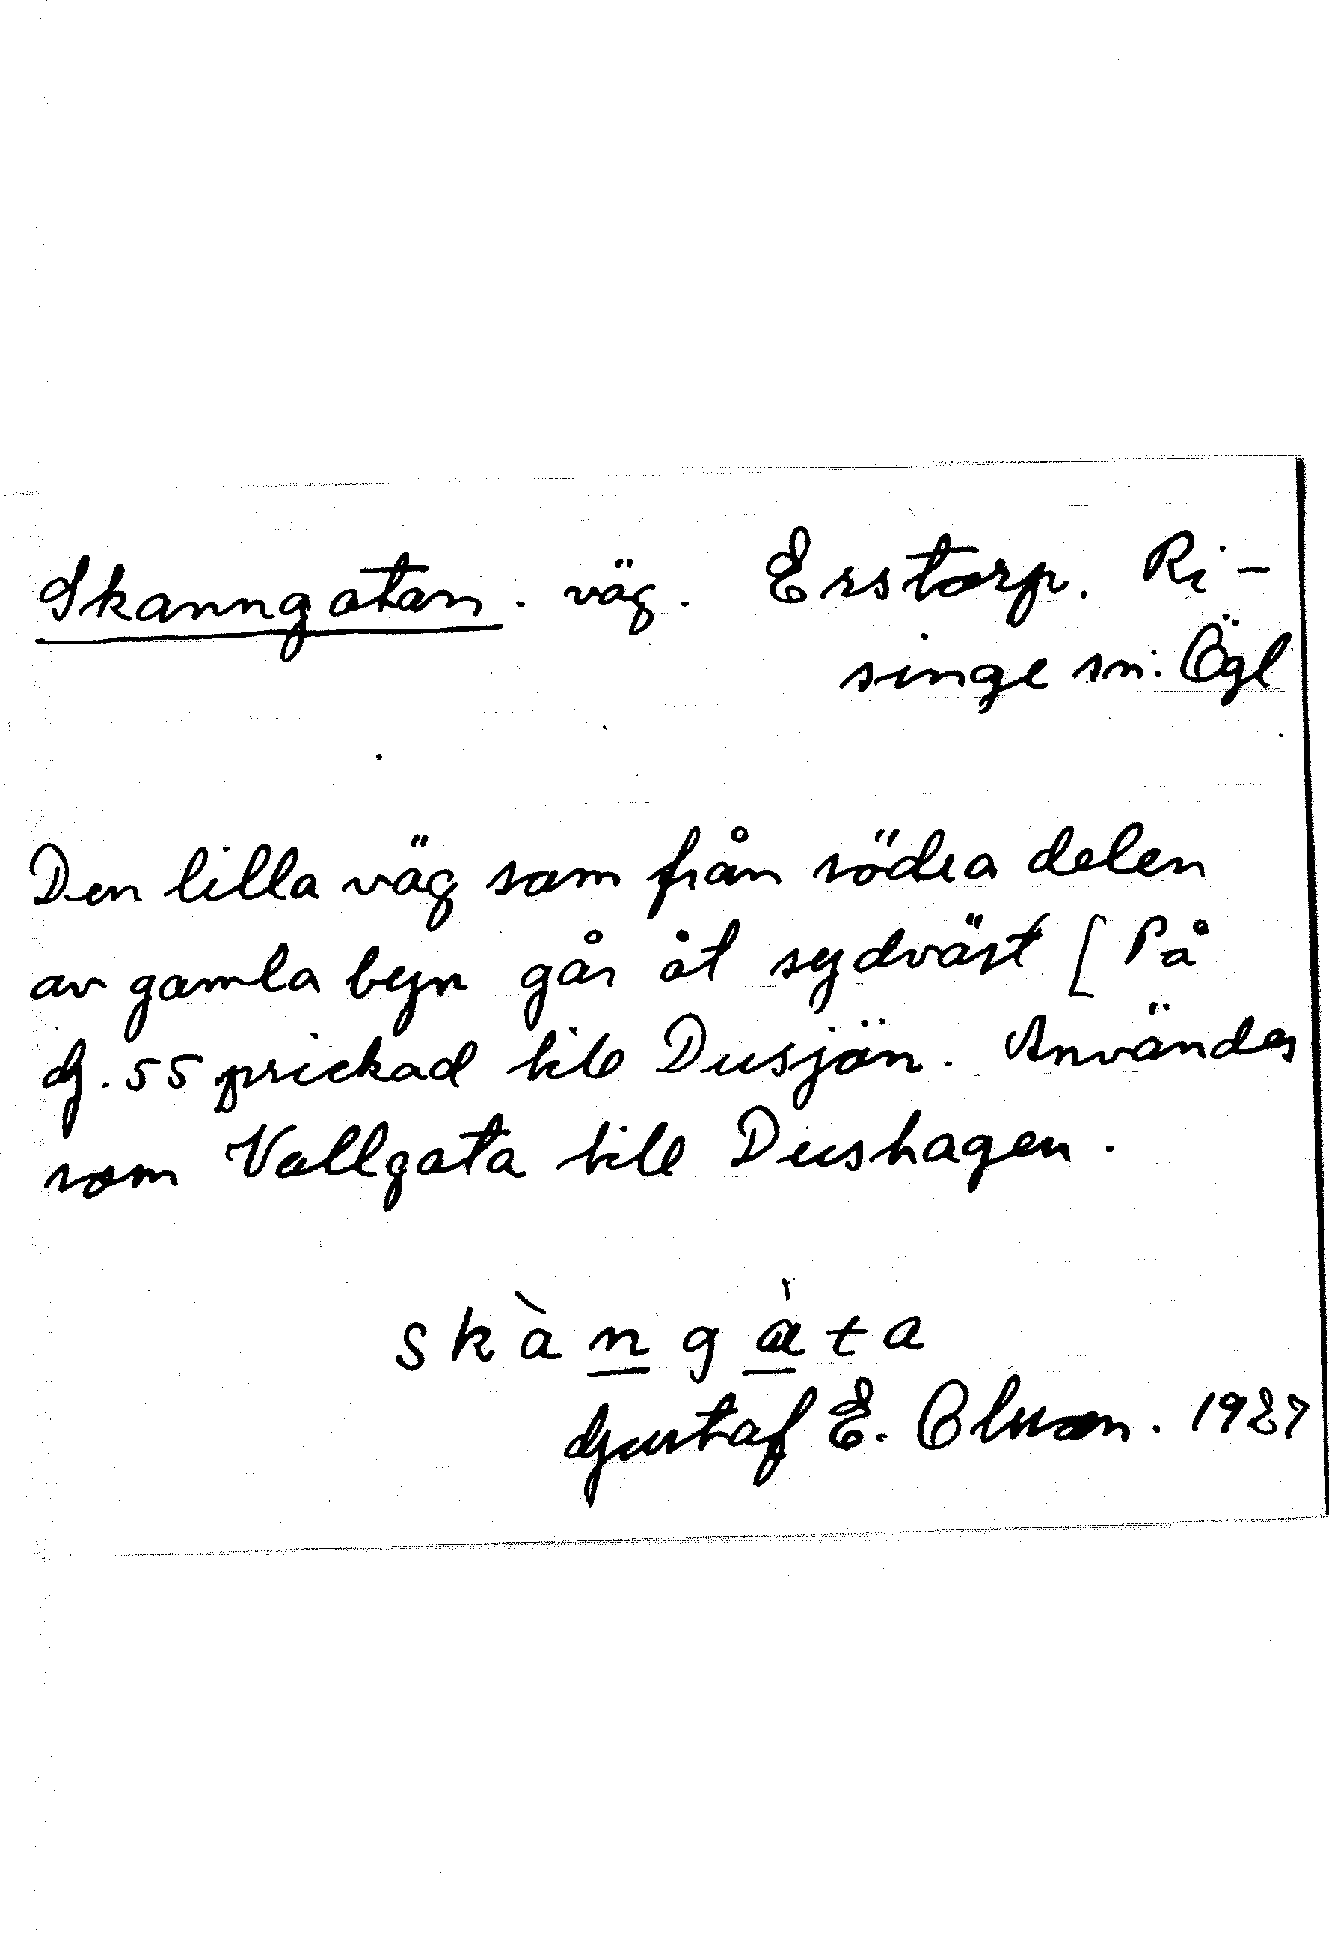 Skanngatan. väg. Erstorp. Ri-
singe sn. Ögl
Den lilla väg som från södra delen
av gamla byn går åt sydväst [ På
G. 55 prickad till Dusjön. Användes
som Vallgata till Dushagen.
skàngàta
Gustaf E. Olsson. 1927